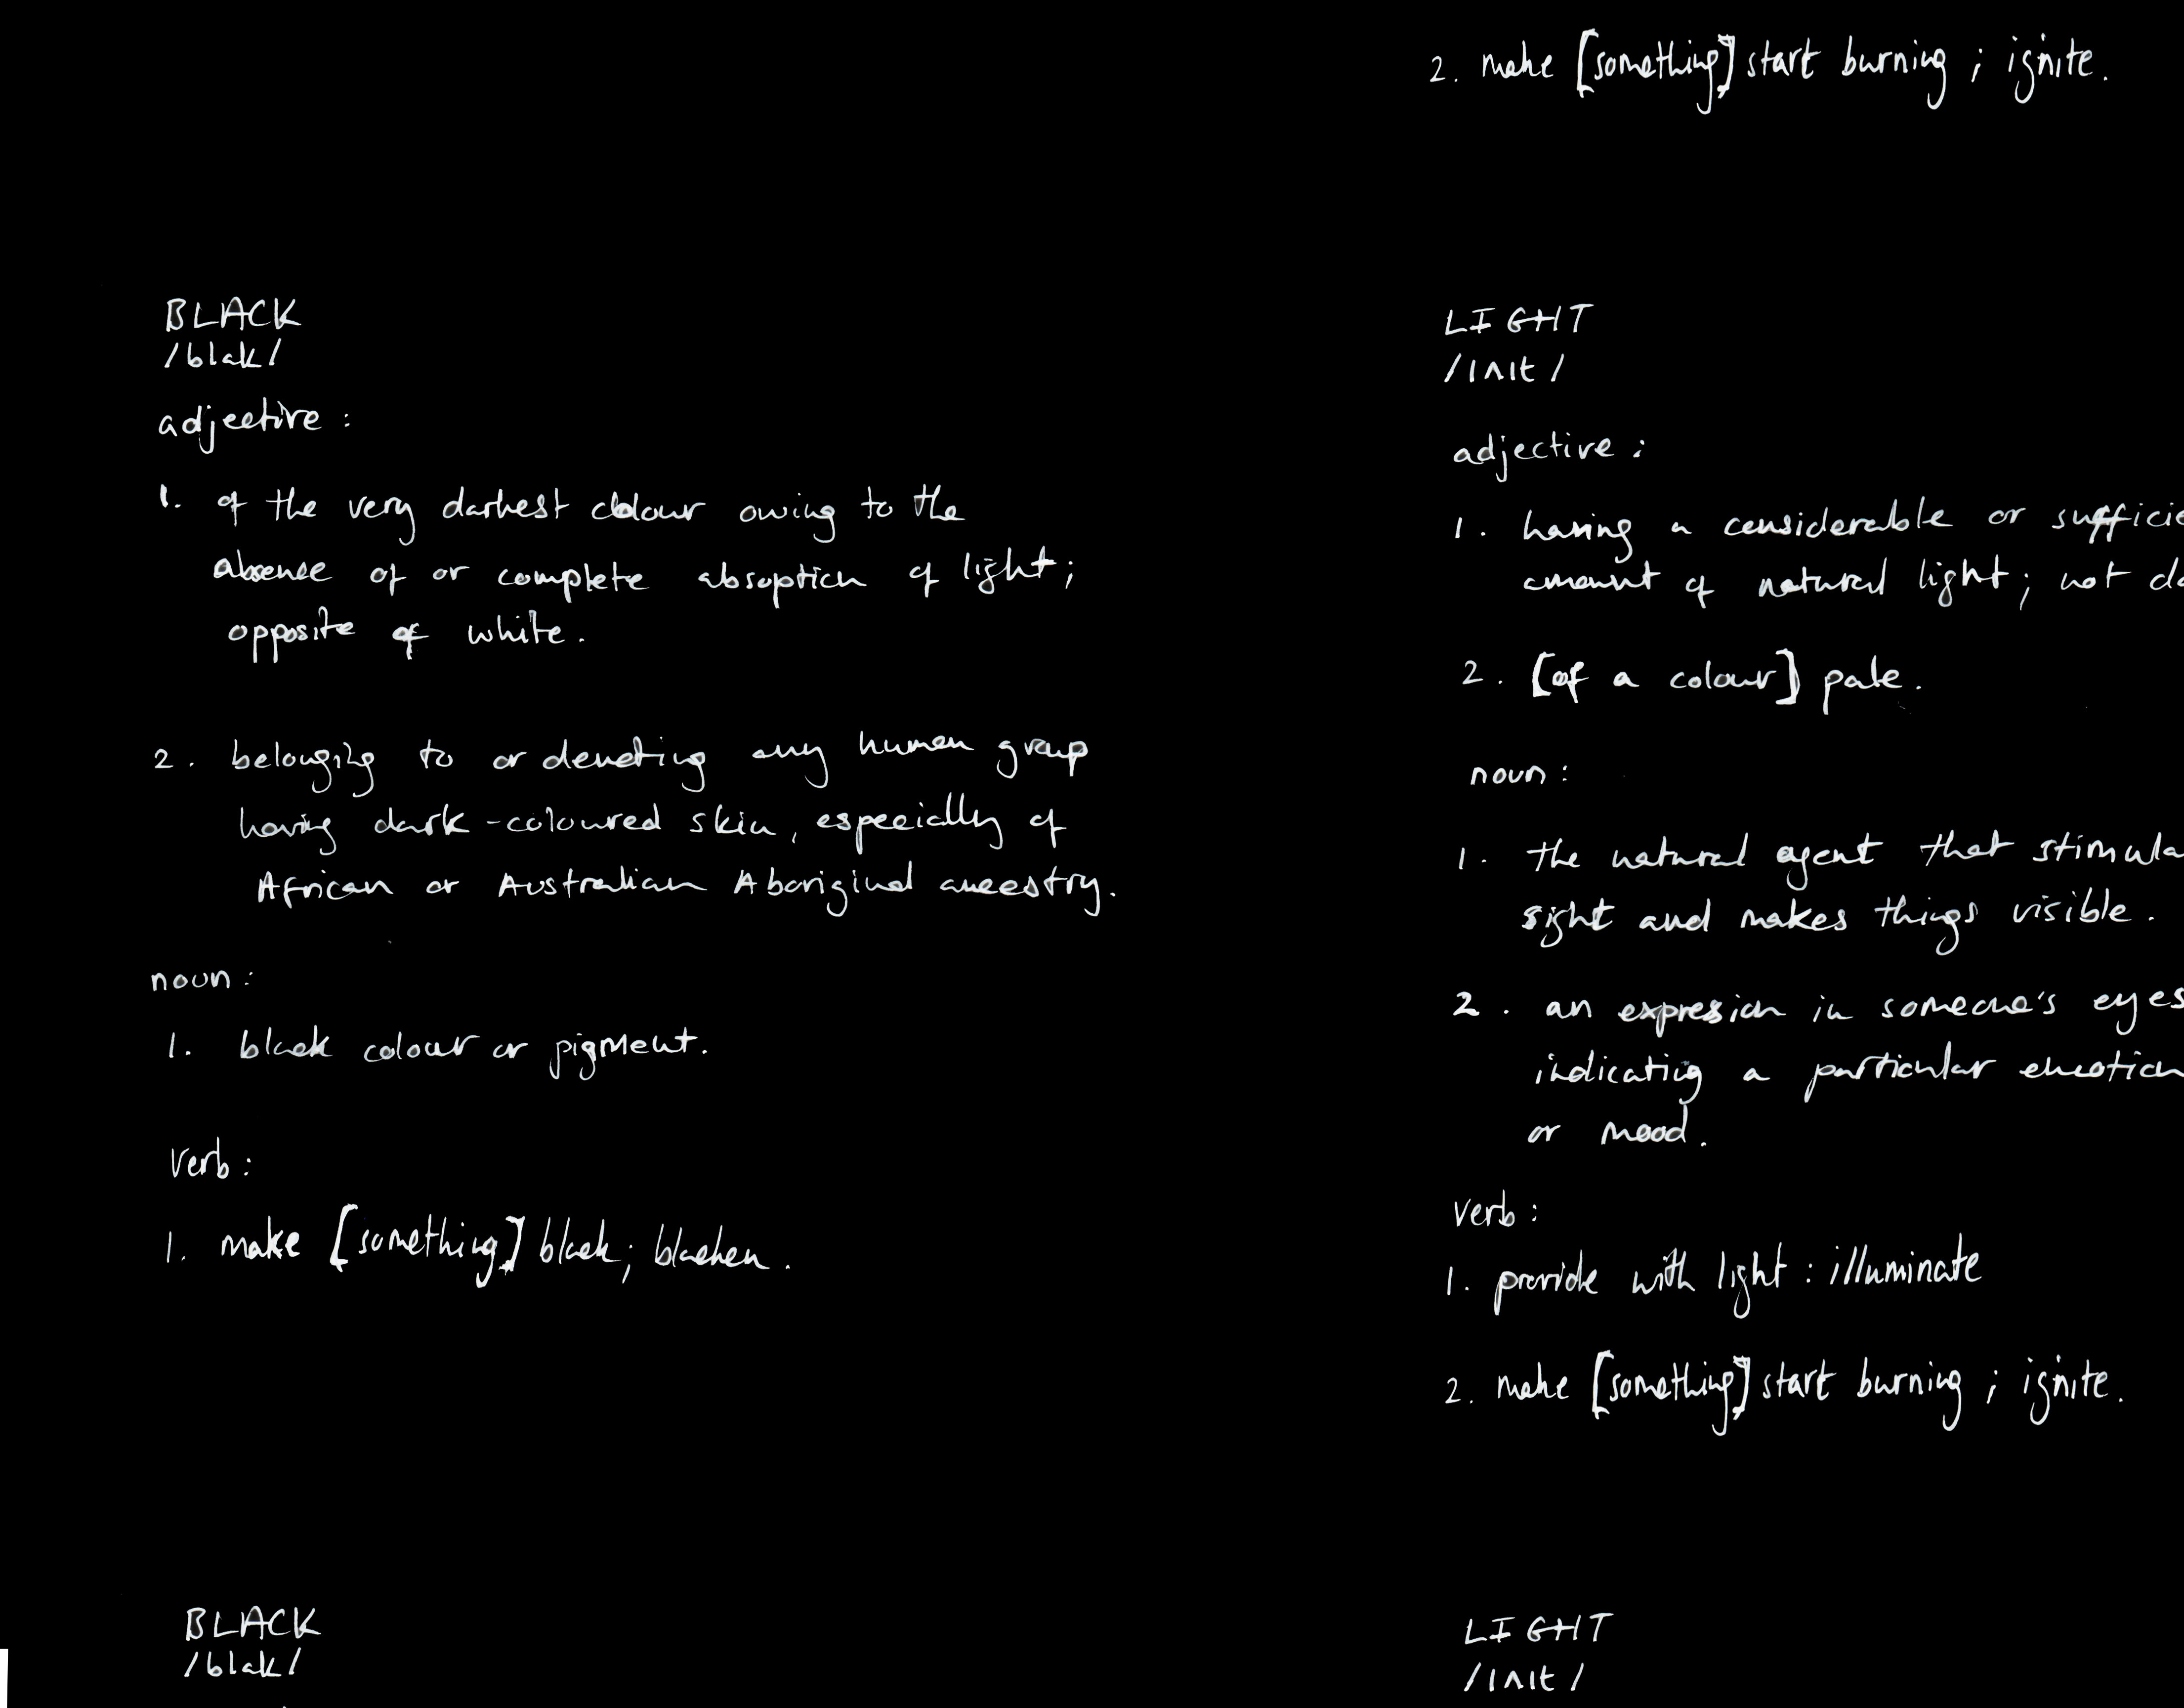 2. make [something] start burning ; ignite.
BLACK
/blak/
adjective :
1. of the very darkest colour owing to the
absence of or complete absoption of light;
opposite of white.
2. belonging to or denoting any human group
having dark-coloured skin, especially of
African or Australian Aboriginal ancestry.
noun :
1. black colour or pigment.
verb :
1. make [something] black; blacken.
LIGHT
/lʌɪt/
adjective :
1. having a considerable or suffici
amount of natural light; not da
2. [of a colour] pale.
noun :
1. the natural agent that stimula
sight and makes things visible.
2. an expresion in someone's eyes
indicating a particular emotion
or mood.
verb :
1. provide with light : illuminate
2. make [something] start burning ; ignite.
BLACK
/blak/
LIGHT
/lʌɪt/